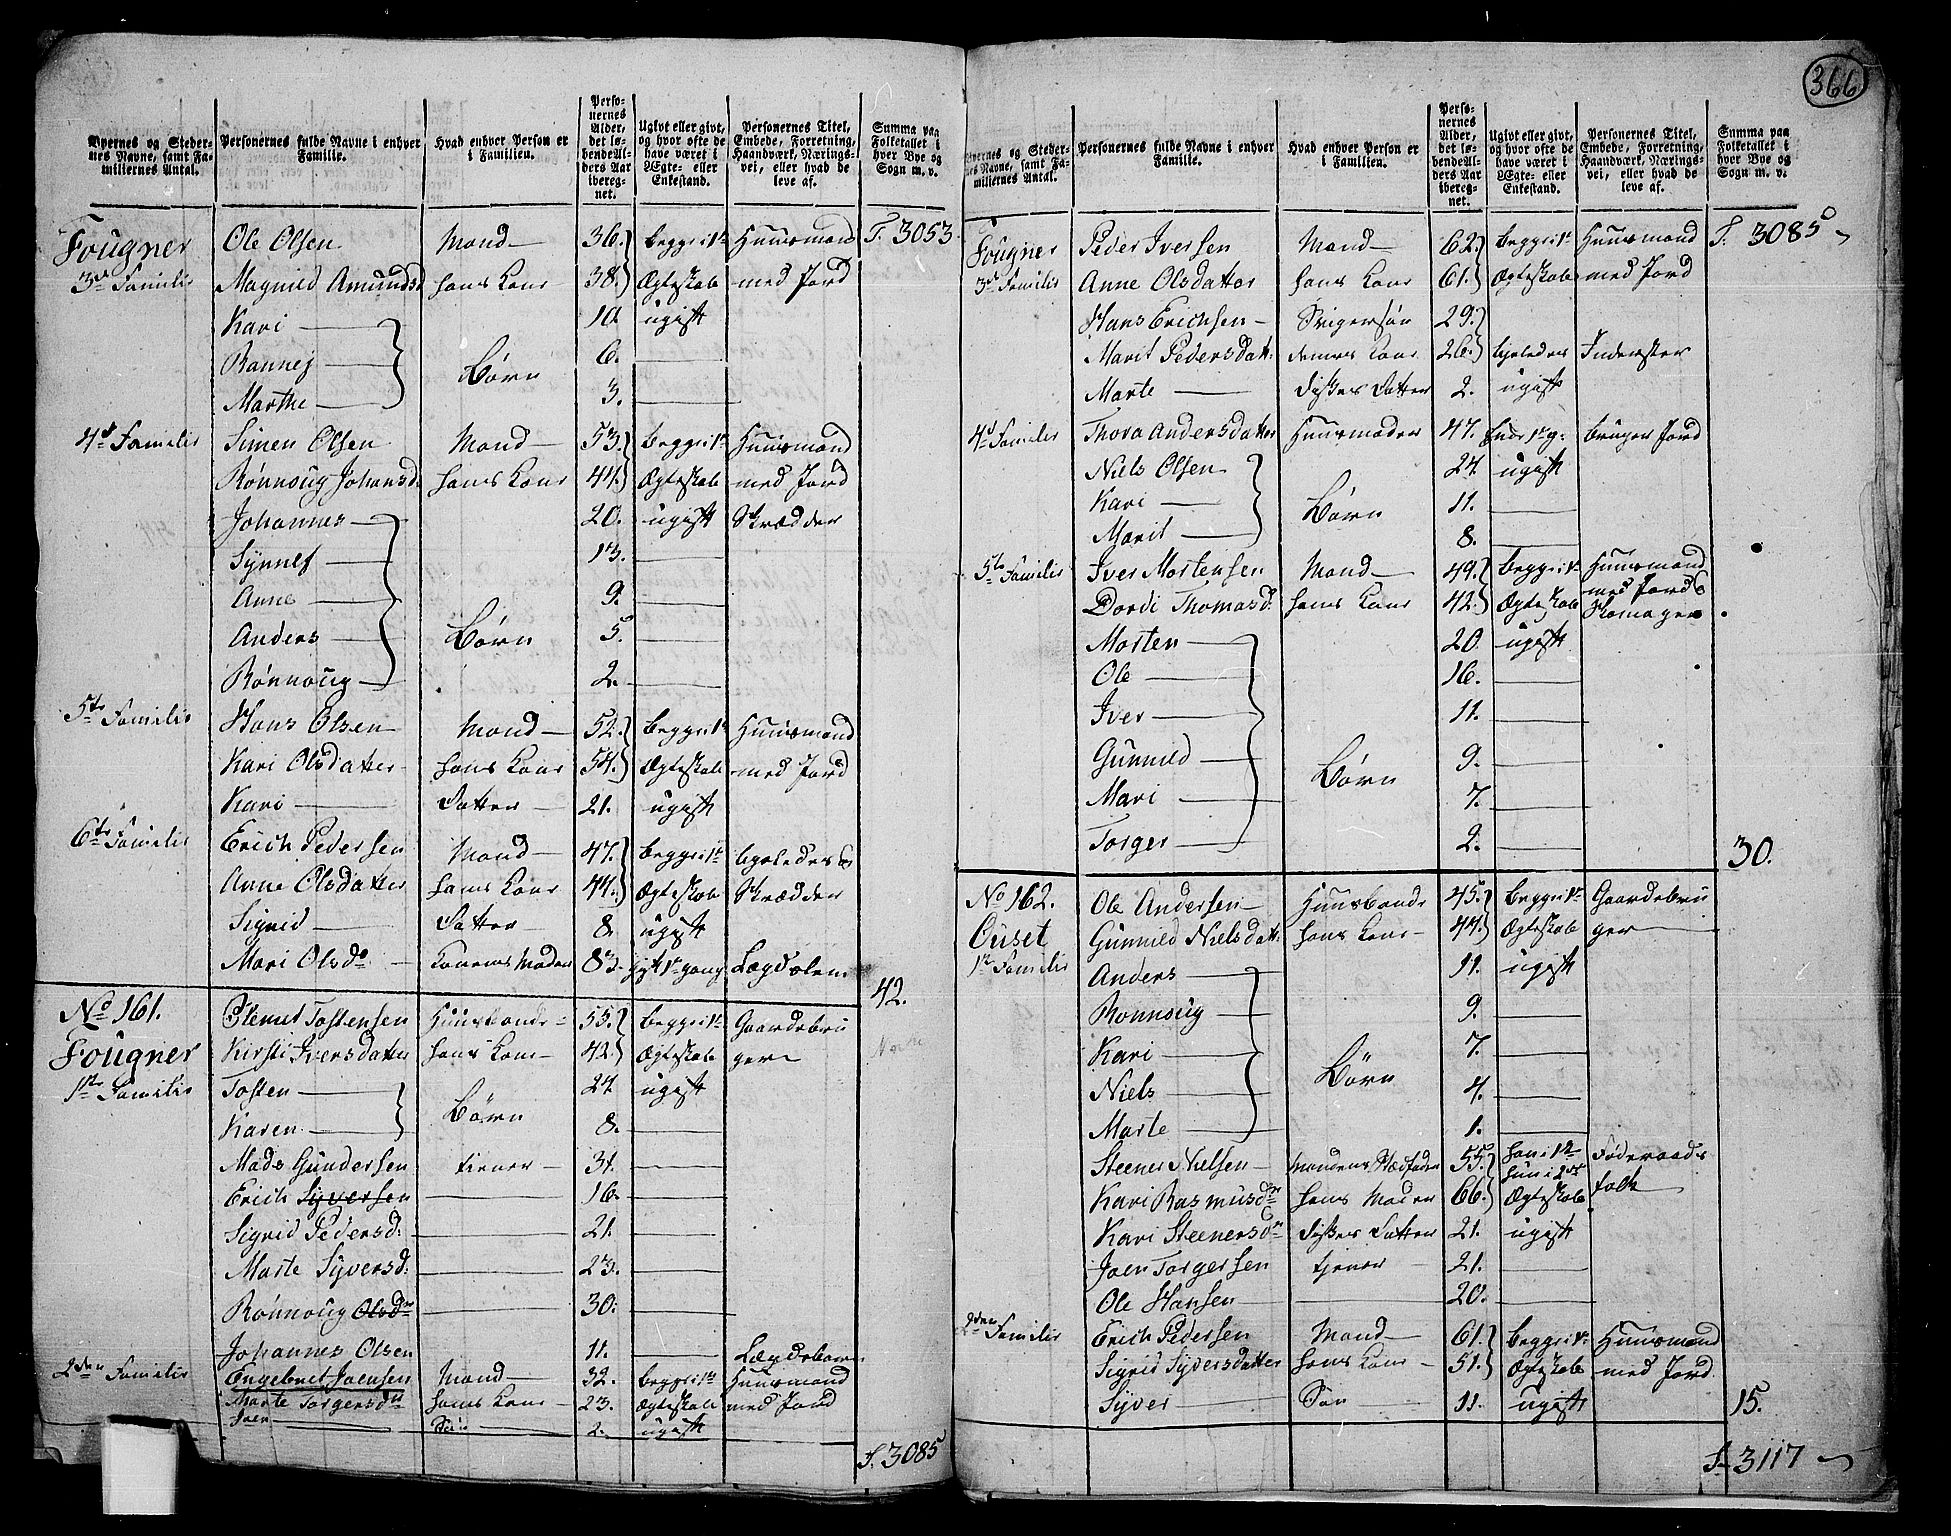 366
Byernes og Stedernes Navne, samt Familiernes Antal. | Personernes fulde Navne i enhver Familie. | Hvad enhver Person er i Familien. | Personernes Alder, det løbende Alders Aar iberegnet. | Ugivt eller givt, og hvor ofte de have været i Ægte- eller Enkestand. | Personernes Titel, Embede, Forretning, Haandværk, Næringsvei, eller hvad de leve af. | Summa paa Folketallet i hver Bye og Sogn m. v.
Fougner | Ole Olsen | Mand | 36. | begge i 1te | Huusmand | T. 3053
3de Familie | Magnild Amundsd | hans Kone | 38. | Ægteskab | med Jord
Kari | 10 | ugift
Rannej | Børn | 6.
Marthe | 3.
4de Familie | Simen Olsen | Mand | 53. | begge i 1te | Huusmand
Rønnoug Johansd. | hans Kone | 44. | Ægteskab | med Jord
Johannes | 20. | ugift | Skrædder
Synnef | 13.
Anne | 9.
Anders | Børn | 5.
Rønnoug | 2.
5te Familie | Hans Olsen | Mand | 52. | begge i 1te | Huusmand
Kari Olsdatter | hans Kone | 54. | Ægteskab | med Jord
Kari | Datter | 21. | ugift
6te Familie | Erich Pedersen | Mand | 47. | begge i 1te
Anne Olsdatter | hans Kone | 44. | Ægteskab | Skrædder
Sigrid | Datter | 8. | ugift
Mari Olsdr | Konens Moder | 83. | gift 1te gang | Lægdslem | 42.
No 161. | Clemet Tostensen | Huusbonde | 55. | begge i 1te | Gaardebru
Fougner | Kirsti Iversdatter | hans Kone | 42. | Ægteskab | ger
1te Familie | Tosten | Børn | 24 | ugift
Karen | 8.
Mads Gundersen | tiener | 31.
Erich Syversen | 16.
Sigrid Pedersd: | 21.
Marte Syversd: | 23.
Rønnoug Olsdr | 30.
Johannes Olsen | 11. | Lægdsbarn
2den Familie | Engebret Joensen | Mand | 32. | begge i 1te | Huusmand
Marte Torgersdtr | hans Kone | 23. | Ægteskab | med Jord
Joen | Søn | 2. | ugift
S. 3085
Byernes og Stedernes Navne, samt Familiernes Antal. | Personernes fulde Navne i enhver Familie. | Hvad enhver Person er i Familien. | Personernes Alder, det løbende Alders Aar iberegnet. | Ugivt eller givt, og hvor ofte de have været i Ægte- eller Enkestand. | Personernes Titel, Embede, Forretning, Haandværk, Næringsvei, eller hvad de leve af. | Summa paa Folketallet i hver Bye og Sogn m. v.
Fougner | Peder Iversen | Mand | 62. | begge i 1te | Huusmand | T. 3085
3de Familie | Anne Olsdatter | hans Kone | 61. | Ægteskab | med Jord
Hans Erichsen | Svigersøn | 29.
Marit Pedersdatt: | dennes Kone | 26. | ligeledes | Inderster
Marte | disses Datter | 2. | ugift
4de Familie | Thora Andersdatter | Huusmoder | 47. | Enke 1te g: | bruger Jord
Niels Olsen | 24 | ugift
Kari | Børn | 11.
Marit | 8.
5te Familie | Iver Mortensen | Mand | 49. | begge i 1te | Huusmand
Dordi Thomasd. | hans Kone | 42. | Ægteskab | med Jord & Skomager
Morten | 20 | ugift
Ole | 16.
Iver | 11.
Gunnild | Børn | 9.
Mari | 7.
Torger | 2. | 30.
No 162. | Ole Andersen | Huusbonde | 45. | begge i 1te | Gaardebru
Ouset | Gunnild Nielsdatt: | hans Kone | 44. | Ægteskab | ger
1te Familie | Anders | 11. | ugift
Ronnoug | 9.
Kari | Børn | 7.
Niels | 4.
Marte | 1.
Steener Nielsen | Mandens Stedfader | 55. | han i 1te hun i 2det | Føderaads
Kari Rasmusdtr | hans Moder | 66. | Ægteskab | folk
Kari Steenersdtr | disses Datter | 21. | ugift
Joen Torgersen | tjener | 21.
Ole Hansen | 20.
2den Familie | Erich Pedersen | Mand | 61. | begge i 1te | Huusmand
Sigrid Syversdatter | hans Kone | 51. | Ægteskab | med Jord.
Syver | Søn | 11. | ugift | 15.
S. 3117